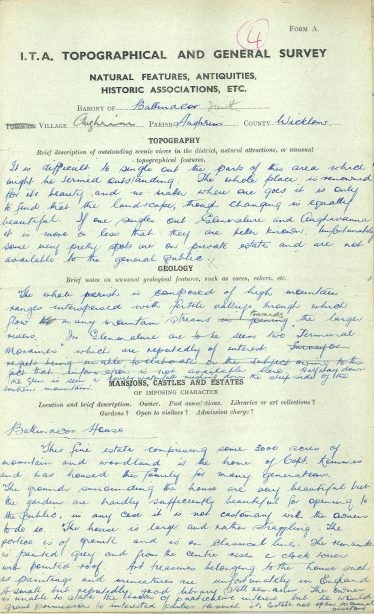 4
FORM A.
I.T.A. TOPOGRAPHICAL AND GENERAL SURVEY
NATURAL FEATURES, ANTIQUITIES,
HISTORIC ASSOCIATIONS, ETC.
BARONY OF Ballinacor
TOWN OR VILLAGE Aughrim PARISH Aughrim COUNTY Wicklow
TOPOGRAPHY
Brief description of outstanding scenic views in the district, natural attractions, or unusual
topographical features.
It is difficult to single out the parts of this area which
might be termed outstanding. The whole place is renowned
for its beauty and no matter where one goes it is only
to find that the landscape, though changing is equally
beautiful. If one singles out Glenmalure and Aughavanna
it is more or less that they are better known. Unfortunately
some very pretty spots are on private estate and are not
available to the general public.
GEOLOGY
Brief notes on unusual geological features, such as caves, eskers, etc.
The whole parish is composed of high mountain
ranges interspersed with fertile valleys through which
flow many mountain streams towards the larger
rivers. In Glenmalure are to be seen two Terminal
Morraines which are reputedly of interest
owing to the
fact that information is not available here. Halfway down
the Glen is seen a down the steep side of the
mountain
MANSIONS, CASTLES AND ESTATES
OF IMPOSING CHARACTER
Location and brief description. Owner. Past associations. Libraries or art collections?
Gardens? Open to visitors? Admission charge?
Ballinacor House
This fine estate comprising some 3000 acres of
mountain and woodland is the home of Capt. Kemmis
and has housed this family for many generations.
The grounds surrounding the house are very beautiful but
the gardens are hardly sufficiently beautiful for opening to
the public, in any case it is not customary with the owners
to do so. The house is large and rather straggling. The
portico is of granite and is on classical lines. The
is painted grey and from the centre rises a clock tower
with pointed roof. Art treasures belonging to the house such
as paintings and miniatures are unfortunately in England
A small but reputedly good library still remains. The owner
unable to state the books of particular interest but would
grant permission to interested parties to visit it.